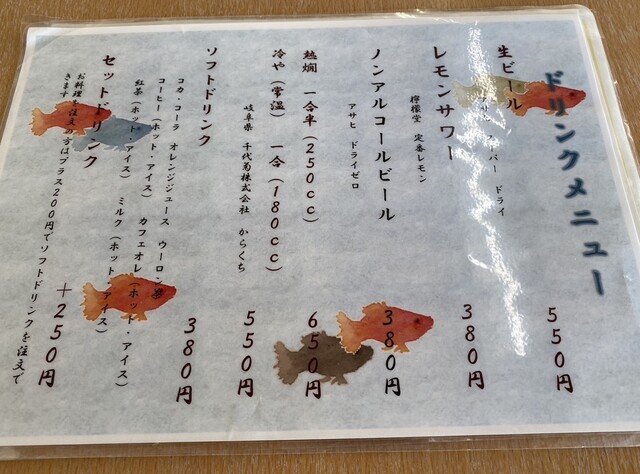 ドリンクメニュー
生ビール 550円
アサヒ スーパー ドライ
レモンサワー 380円
檸檬堂 定番レモン
ノンアルコールビール 380円
アサヒ ドライゼロ
熱燗 一合半(250cc) 650円
冷や(常温) 一合(180cc) 550円
岐阜県 千代菊株式会社 からくち
ソフトドリンク 380円
コカ・コーラ オレンジジュース ウーロン茶
コーヒー(ホット・アイス) カフェオレ(ホット・アイス)
紅茶(ホット・アイス) ミルク(ホット・アイス)
セットドリンク +250円
お料理を注文の方はプラス200円でソフトドリンクを注文で
きます